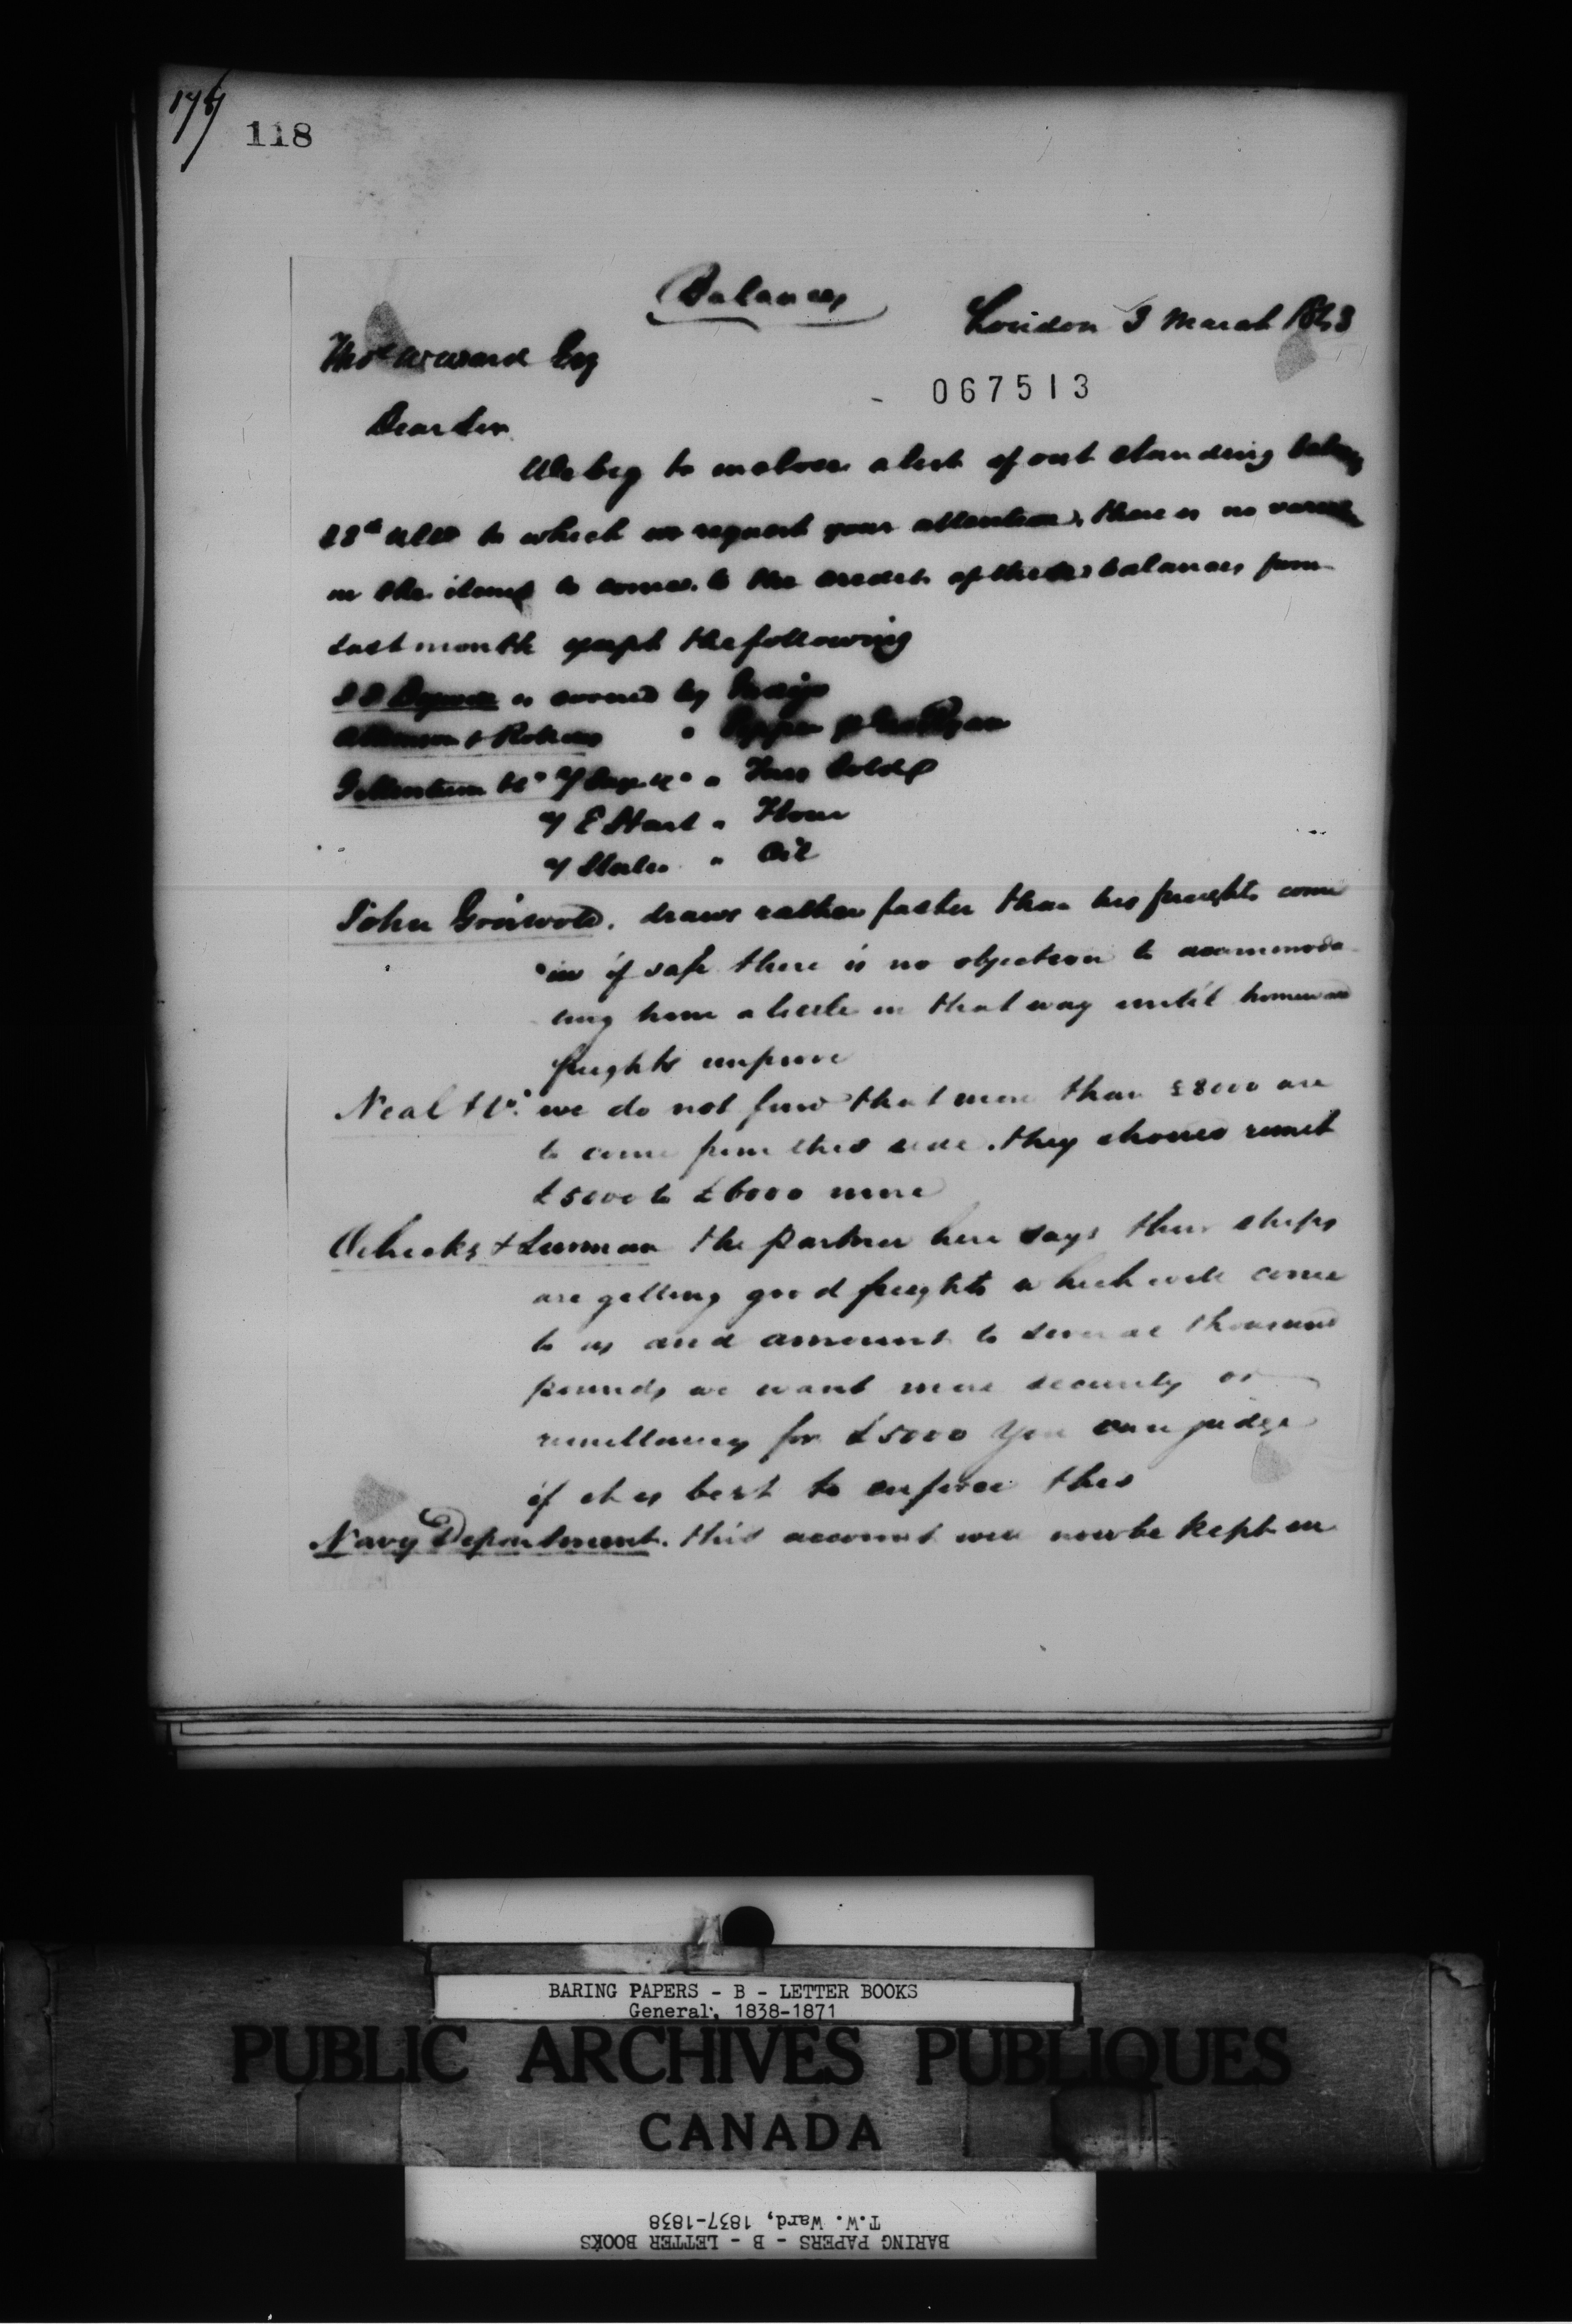 118
Balances
London 3 March 1843
Thos W Ward Esq
067513
Dear Sir
We beg to enclose a list of out standing
28th Ulto to which we request your attention, there is no
in the items to come to the credit of these balances from
last month except the following
is covered by Indigo
Atkinson & Rollins "
"
E Hart " Flour
" Oil
John Griswold. draws rather faster than his freights come
in if safe there is no objection to accommoda
ting him a little in that way until homeward
freights improve
Neal & Co. we do not find that more than £8000 are
to come from this side. they should remit
£5000 to £6000 more
Oelricks & Lurman the partner here says their ships
are getting good freights which will come
to us and amount to several thousand
pounds we want more security or
remittances for £5000 You can judge
if it is best to enforce this
Navy Department. this account will now be kept in
BARING PAPERS - B - LETTER BOOKS
General, 1838-1871
PUBLIC ARCHIVES PUBLIQUES
CANADA
BARING PAPERS - B - LETTER BOOKS
T.W. Ward, 1837-1838